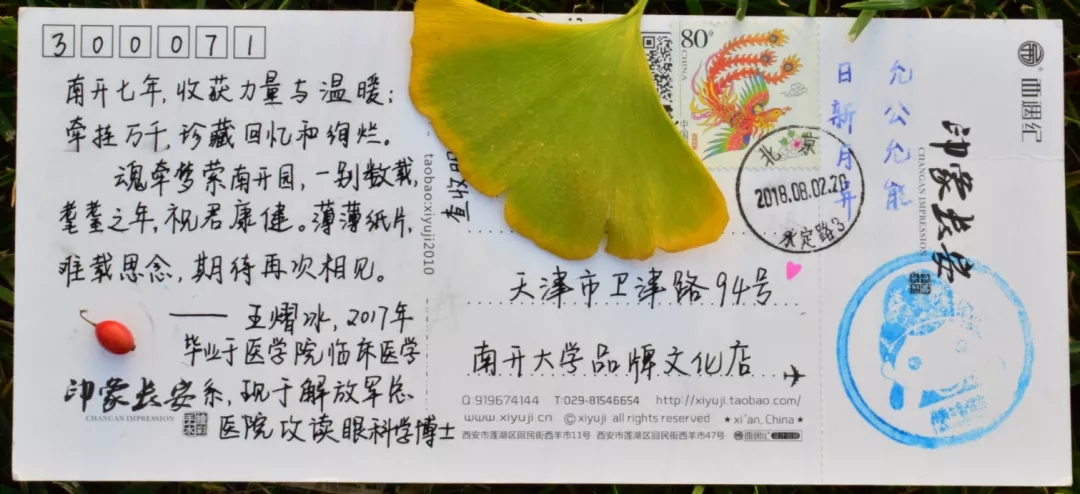 300071
南开七年，收获力量与温暖；
牵挂万千，珍藏回忆和绚烂。
魂牵梦萦南开园，一别数载，
耄耋之年，祝君康健。薄薄纸片，
难载思念，期待再次相见。
—— 王熠冰，2017年
毕业于医学院临床医学
系，现于解放军总
医院攻读眼科学博士
印象长安
CHANGAN IMPRESSION
手绘
水彩
taobao:xiyuji2010
查收
80
CHINA
中国
北京
2018.08.02.20
永定路3
天津市卫津路94号
南开大学品牌文化店
Q:919674144 T:029-81546654 http://xiyuji.taobao.com/
www.xiyuji.cn ©xiyuji all rights reserved ★xi'an, China★
西安市莲湖区回民街西羊市11号 西安市莲湖区回民街西羊市47号 西遇纪
允公允能
日新月异
西遇纪
印象长安
CHANGAN IMPRESSION